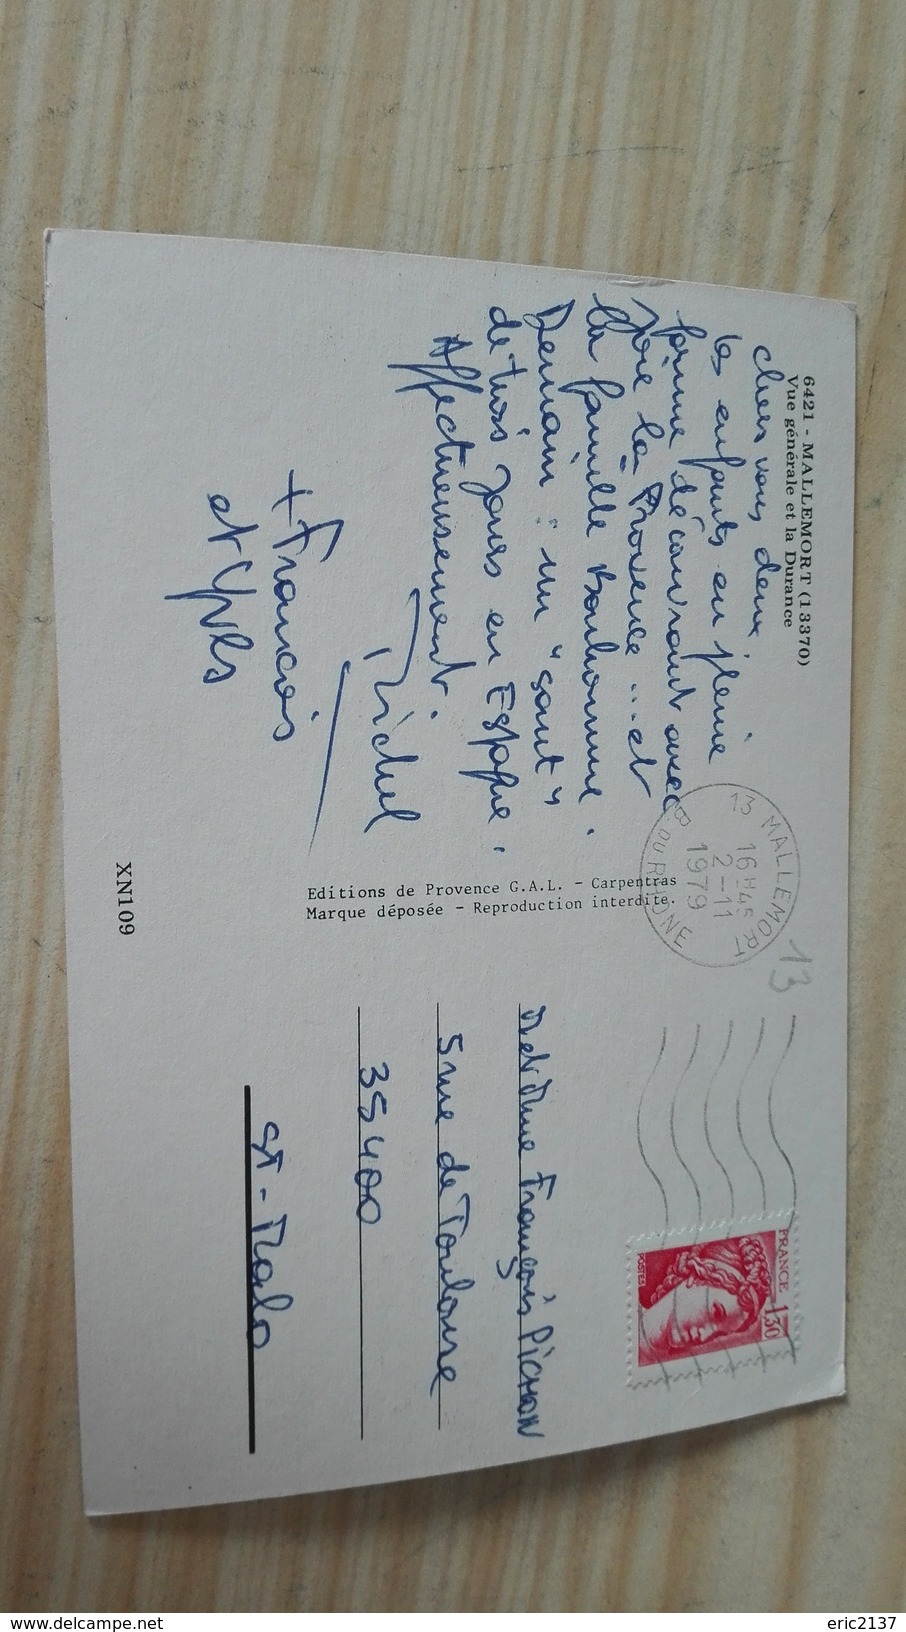 6421 - MALLEMORT (13370)
Vue générale et la Durance
Chers vous deux,
les enfants en pleine
forme découvrant avec
joie la Provence ... et
la famille Bonhomme.
Demain : un " saut "
de trois jours en Espagne.
Affectueusement.
Michel
+ François
et Yves
Editions de Provence G.A.L. - Carpentras
Marque déposée - Reproduction interdite.
XN109
13 MALLEMORT
16H45
2-11
1979
B. DU RHONE
13
FRANCE 1,30
POSTES
M et Mme François PICHON
5 rue de Toulouse
35400
St-Malo
www.delcampe.net
eric2137